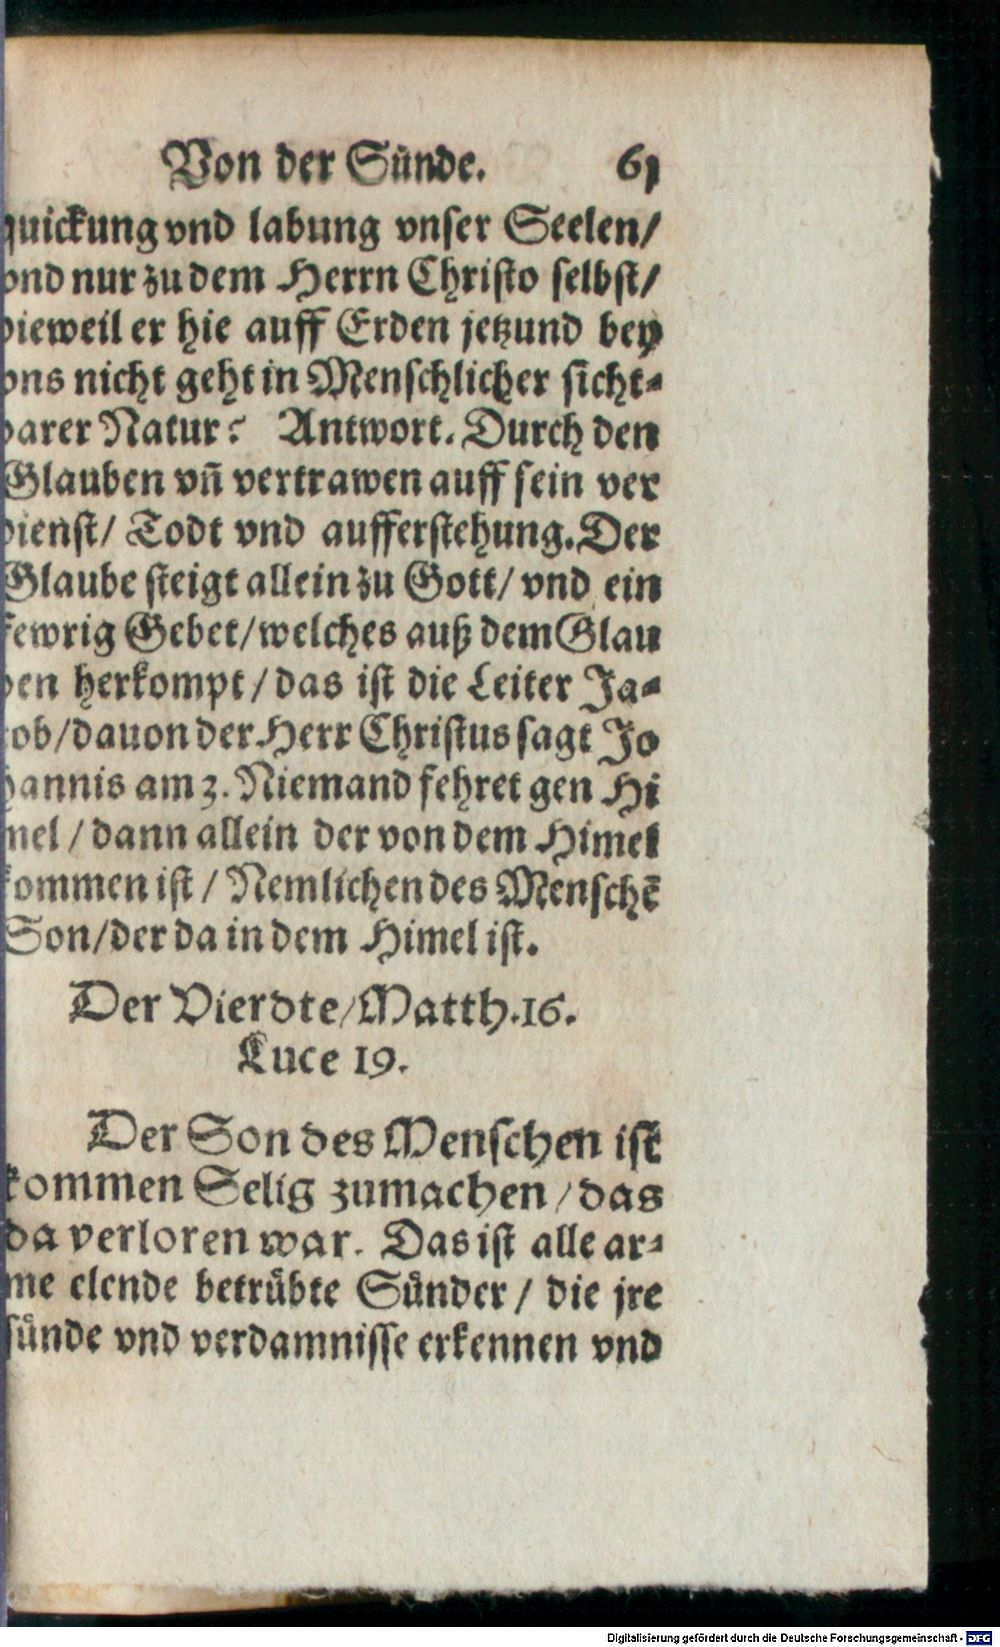 Von der Sünde. 61
quickung vnd labung vnser Seelen/
vnd nur zu dem Herrn Christo selbst/
dieweil er hie auff Erden jetzund bey
vns nicht geht in Menschlicher sicht-
barer Natur? Antwort. Durch den
Glauben vñ vertrawen auff sein ver
dienst/ Todt vnd aufferstehung. Der
Glaube steigt allein zu Gott/ vnd ein
fewrig Gebet/ welches auß dem Glau
ben herkompt/ das ist die Leiter Ja-
cob/ dauon der Herr Christus sagt Jo
hannis am 3. Niemand fehret gen Hi
mel/ dann allein der von dem Himel
kommen ist/ Nemlichen des Menschẽ
Son/ der da in dem Himel ist.
Der Vierdte/ Matth. 16.
Luce 19.
Der Son des Menschen ist
kommen Selig zumachen/ das
da verloren war. Das ist alle ar-
me elende betrübte Sünder/ die jre
sünde vnd verdamnisse erkennen vnd
Digitalisierung gefördert durch die Deutsche Forschungsgemeinschaft - DFG